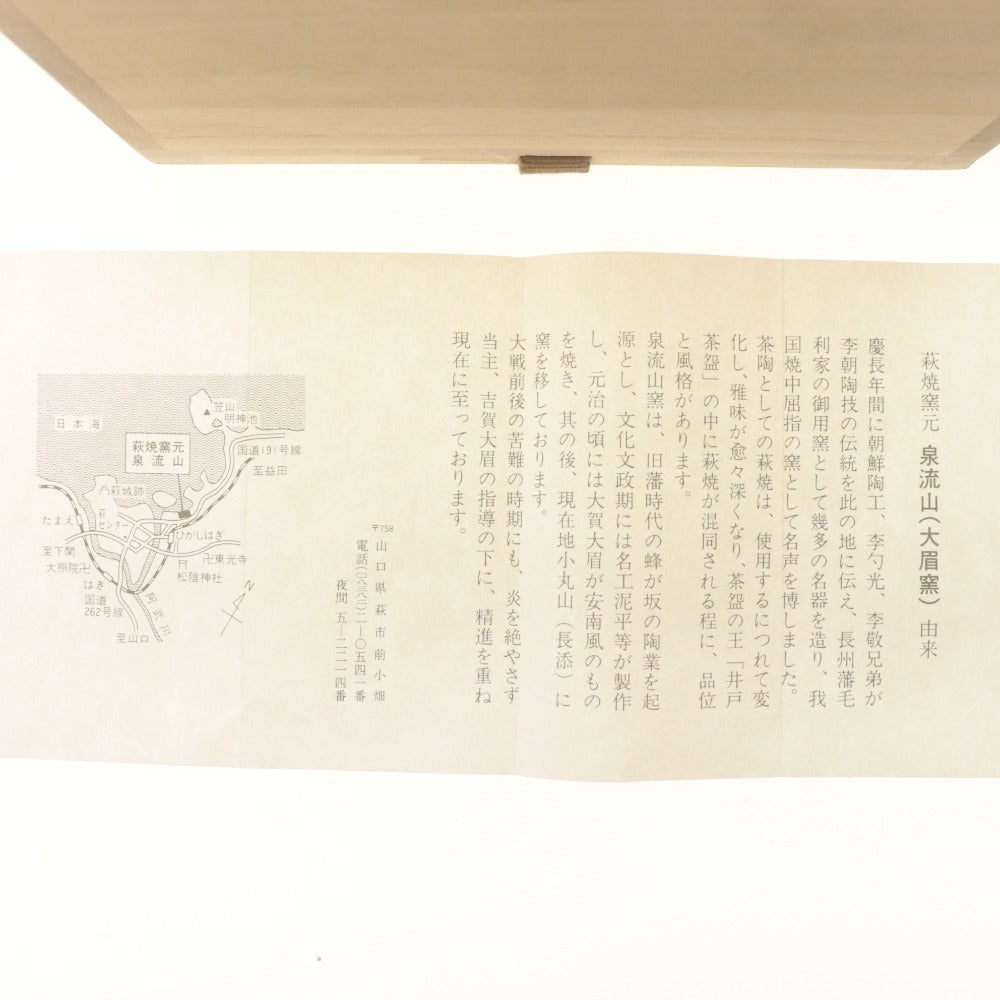 萩焼窯元 泉流山(大眉窯) 由来
慶長年間に朝鮮陶工、李勺光、李敬兄弟が
李朝陶技の伝統を此の地に伝え、長州藩毛
利家の御用窯として幾多の名器を造り、我
国焼中屈指の窯として名声を博しました。
茶陶としての萩焼は、使用するにつれて変
化し、雅味が愈々深くなり、茶盌の王「井戸
茶盌」の中に萩焼が混同される程に、品位
と風格があります。
泉流山窯は、旧藩時代の蜂が坂の陶業を起
源とし、文化文政期には名工泥平等が製作
し、元治の頃には大賀大眉が安南風のもの
を焼き、其の後、現在地小丸山（長添）に
窯を移しております。
大戦前後の苦難の時期にも、炎を絶やさず
当主、吉賀大眉の指導の下に、精進を重ね
現在に至っております。
〒758 山口県萩市前小畑
電話(〇八三八二)二一〇五四一番
夜間 五―二二一四番
日本海
笠山
明神池
萩焼窯元
泉流山
国道191号線
至益田
凸萩城跡
萩
センター
たまえ
ひがしはぎ
至下関
卍東光寺
大照院卍
松陰神社
はぎ
国道
262号線
阿武川
至山口
N